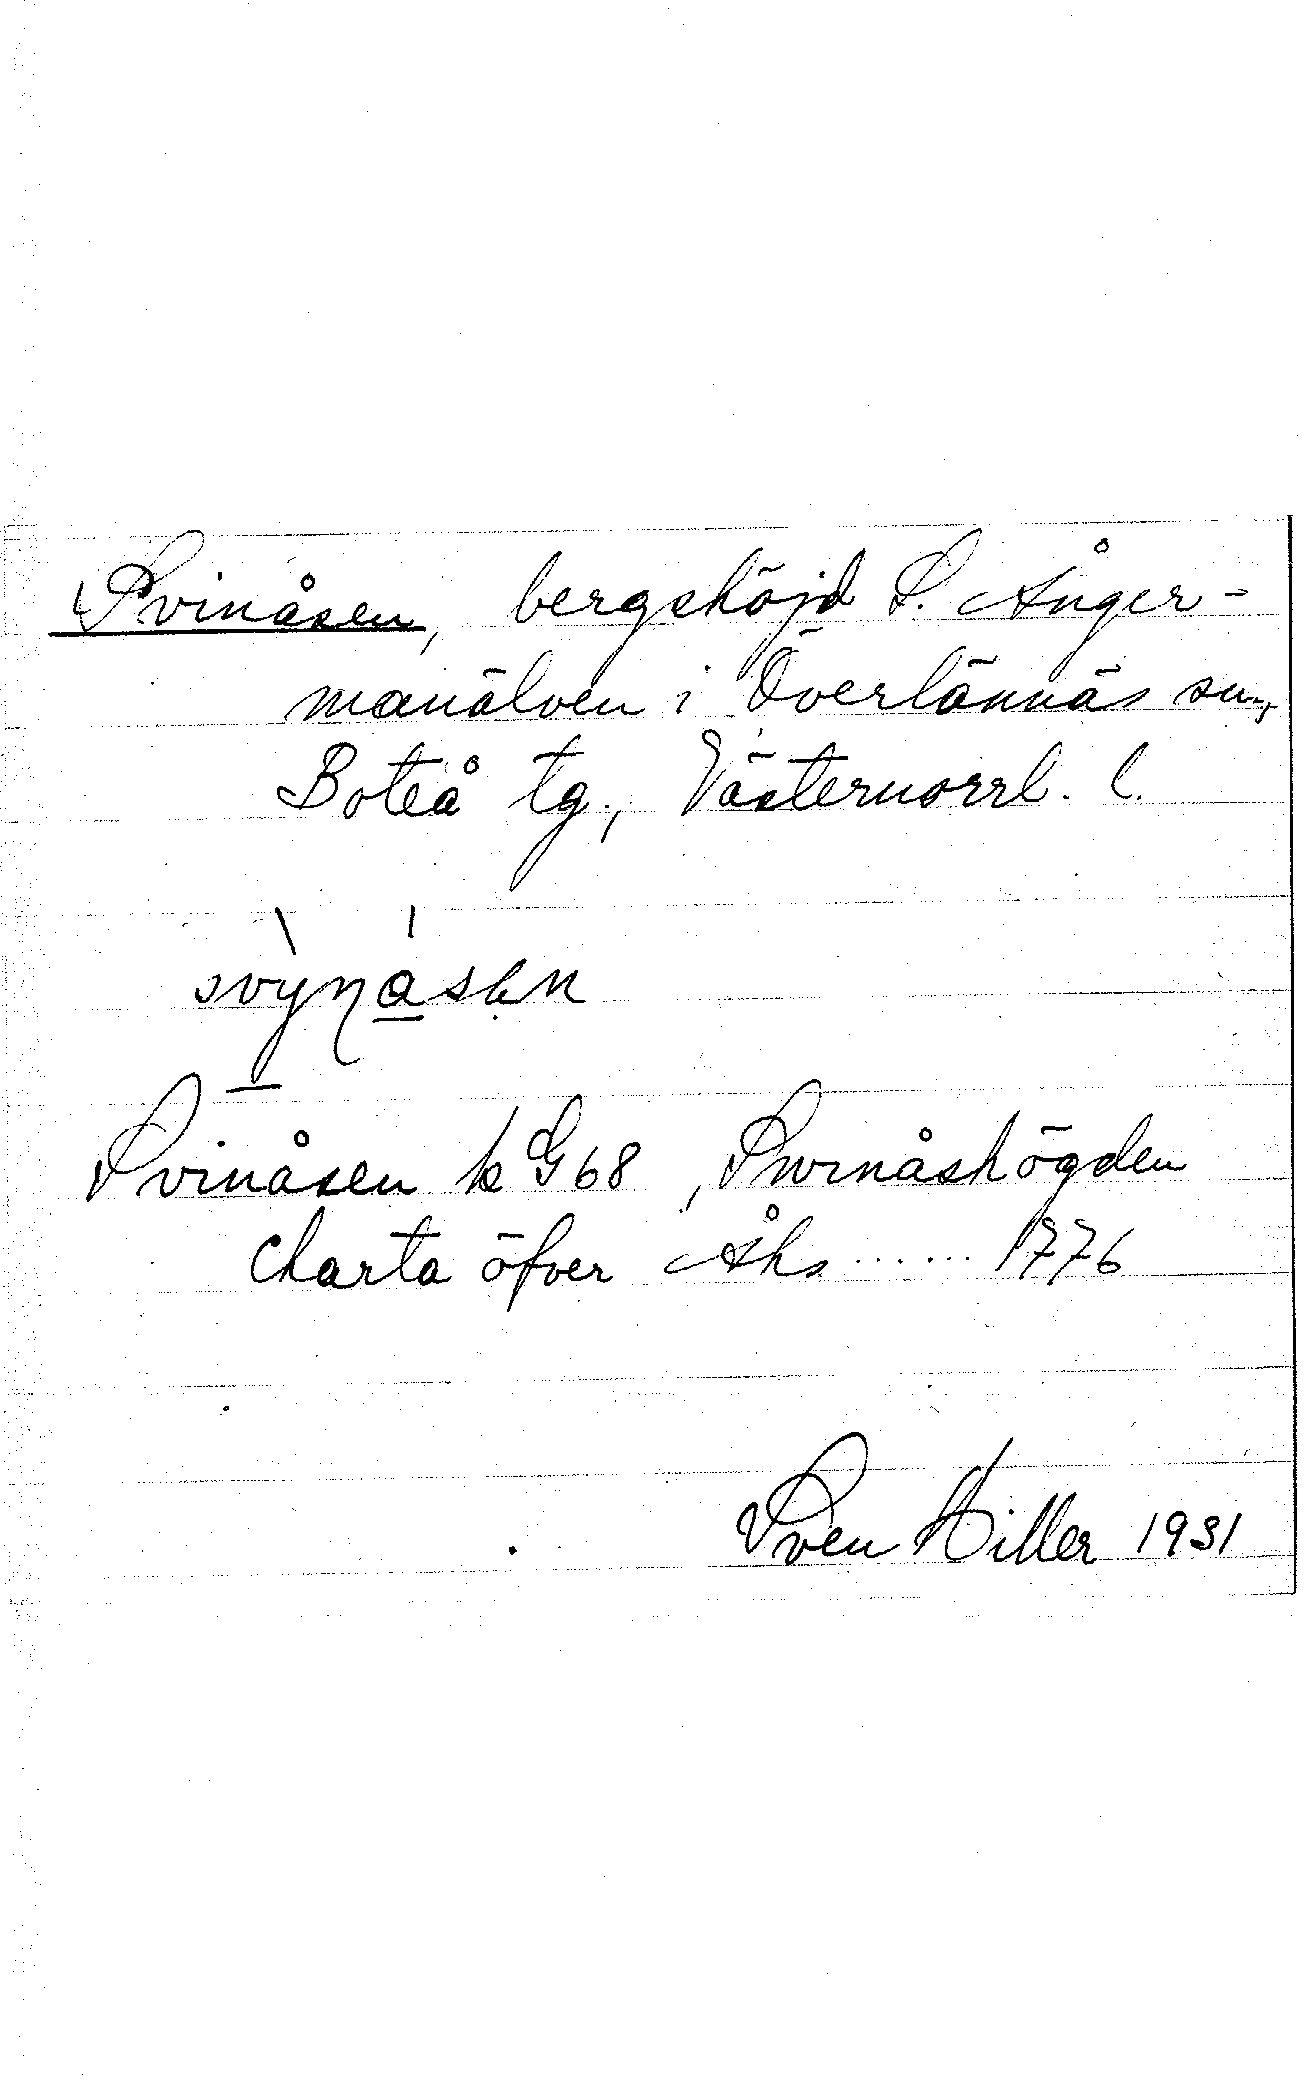 Svinåsen, bergshöjd S. Ånger-
manälven i Överlännäs sn,
Boteå tg., Västernorrl. l.
svynåsen
Svinåsen k G 68, Swinåshögden
Charta öfver Åhs ...... 1776
Sven Hiller 1931